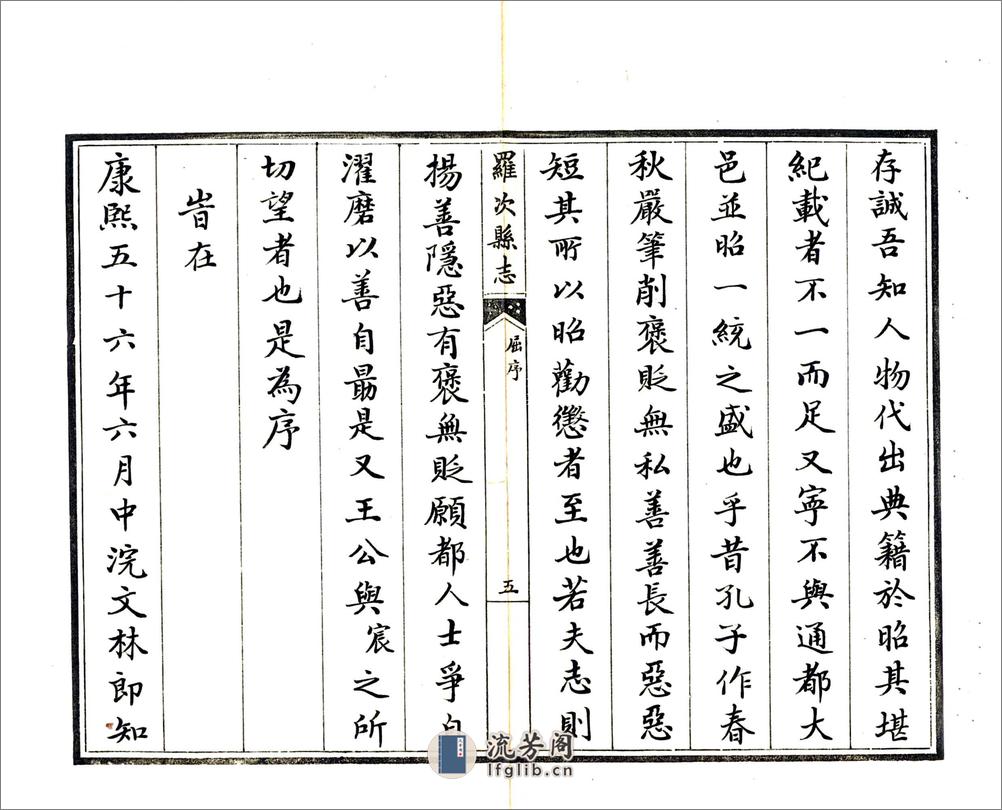 存誠吾知人物代出典籍於昭其堪
紀載者不一而足又寧不與通都大
邑並昭一統之盛也乎昔孔子作春
秋嚴筆削褒貶無私善善長而惡惡
短其所以昭勸懲者至也若夫志則
羅次縣志
屈序
五
揚善隱惡有褒無貶願都人士爭自
濯磨以善自勗是又王公與宸之所
切望者也是為序
旹在
康熙五十六年六月中浣文林郎知
流芳阁
lfglib.cn